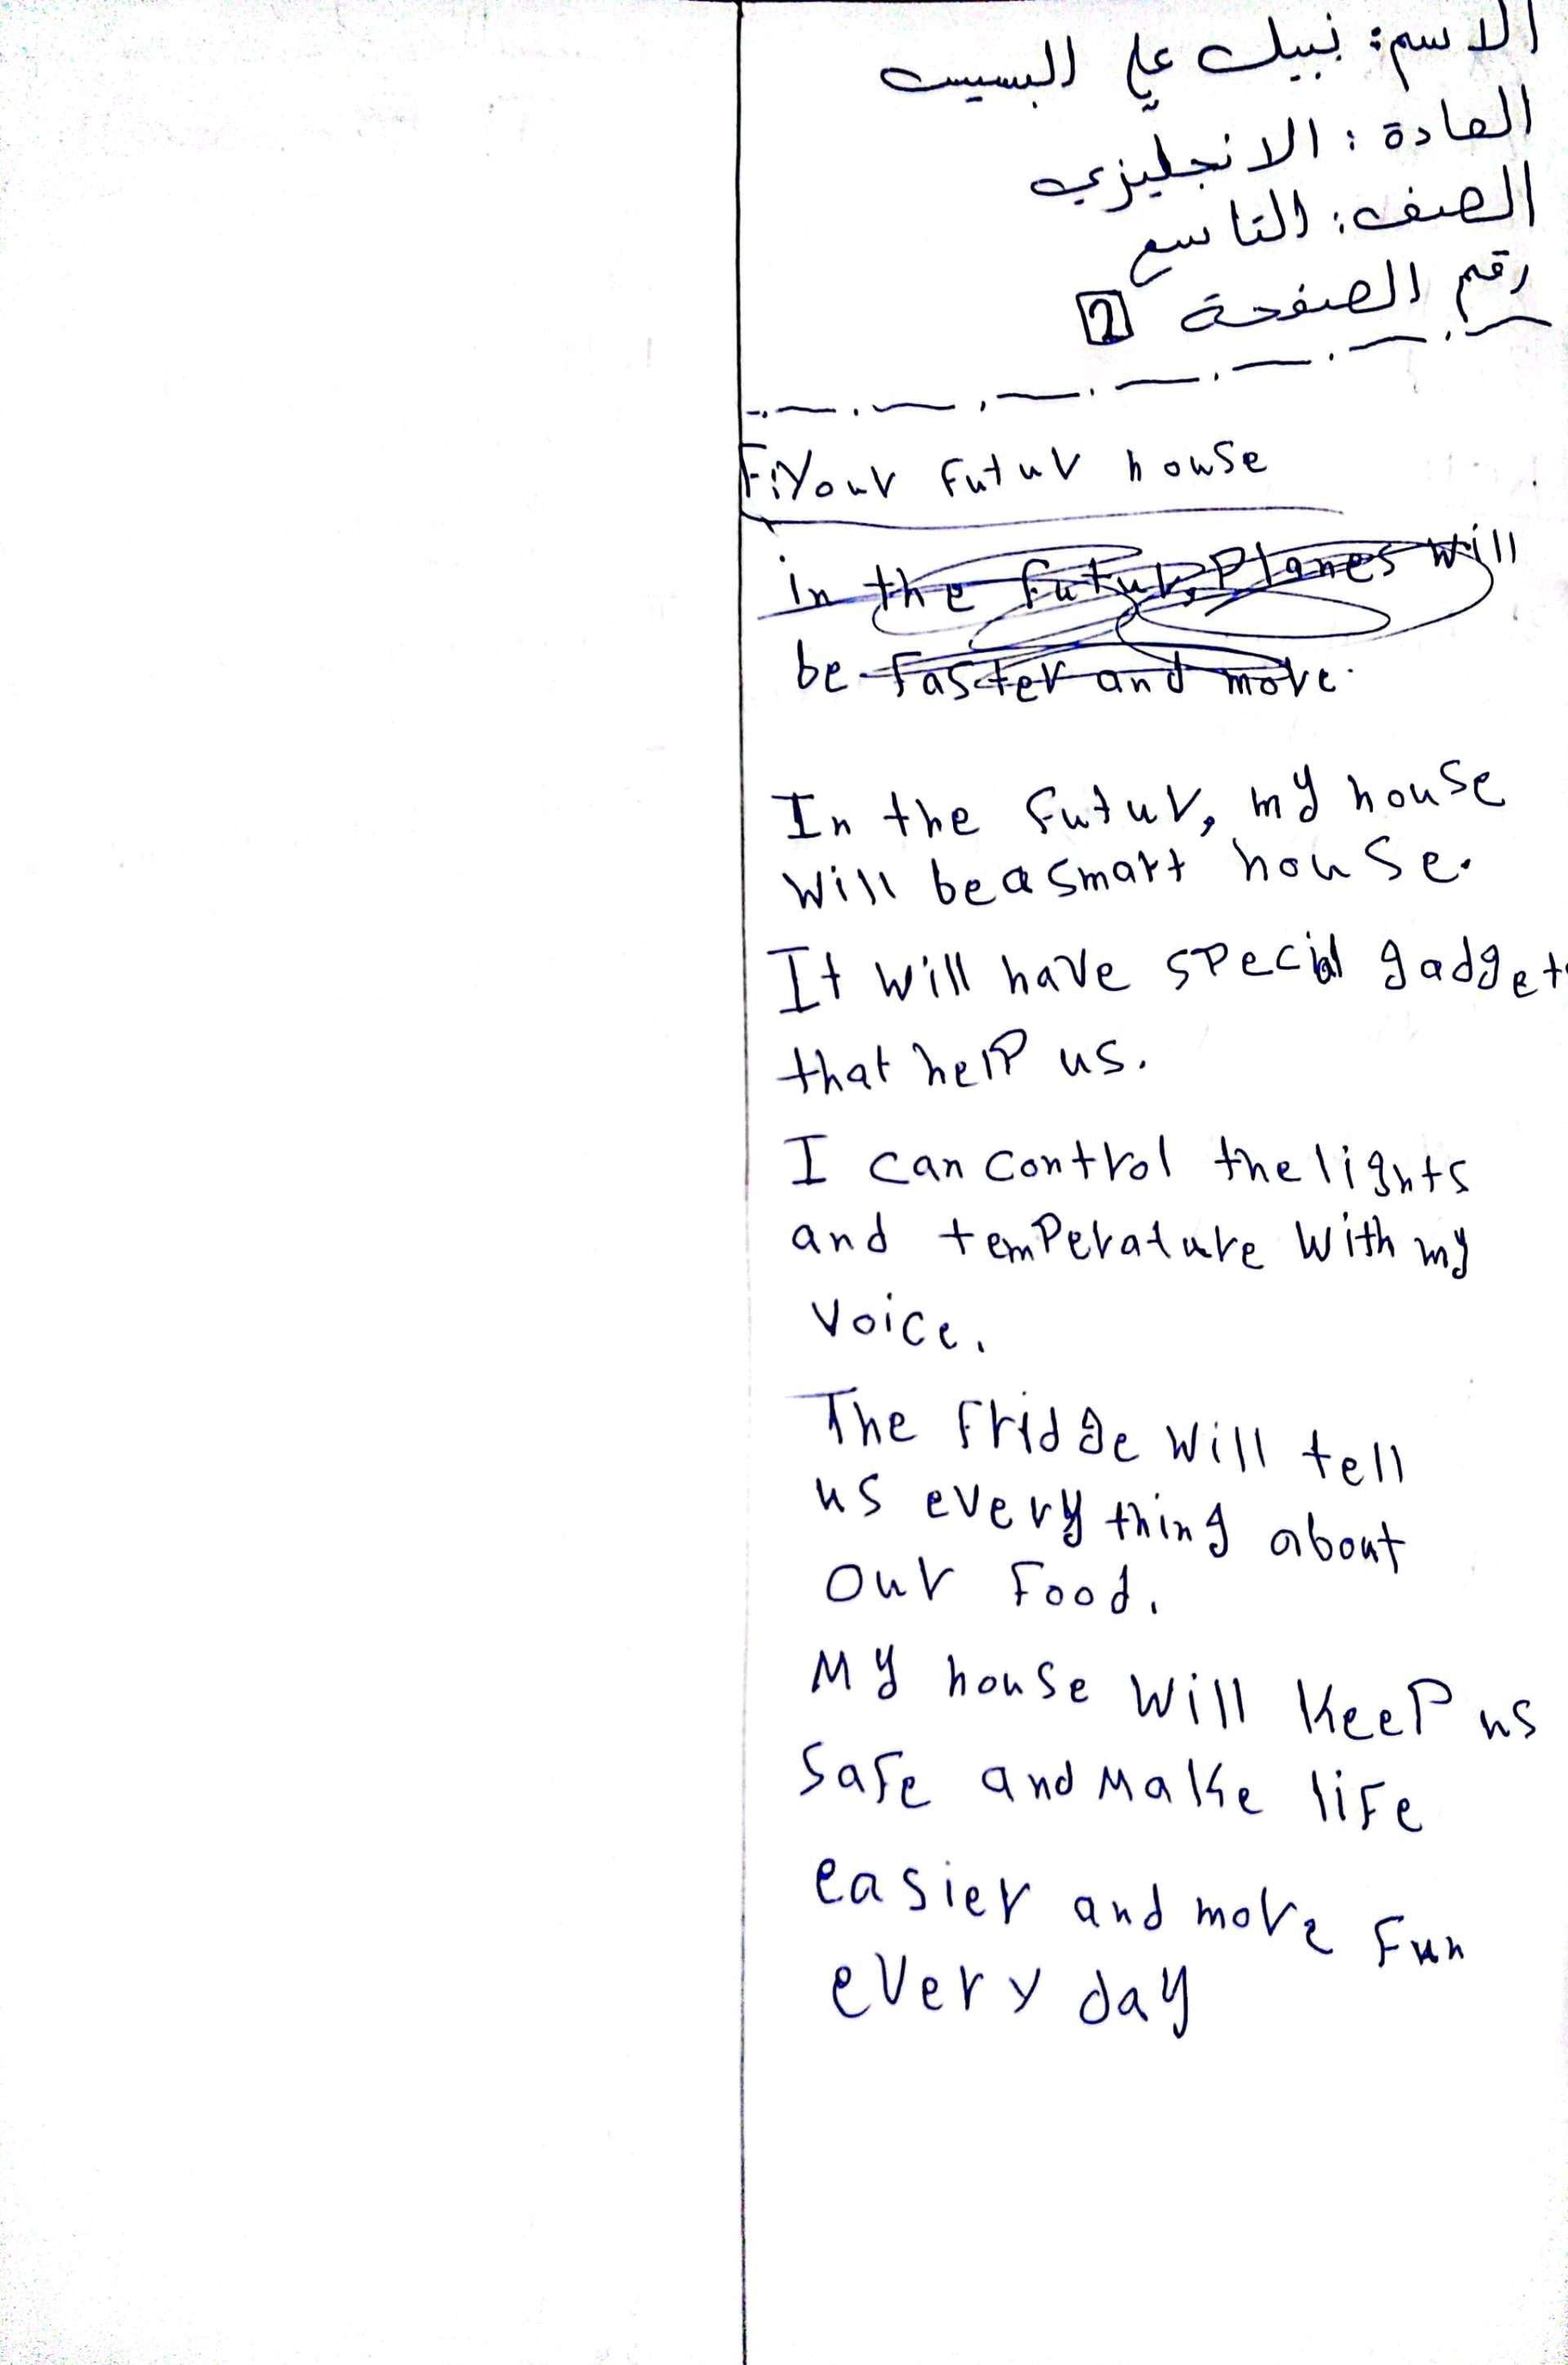 الاسم: نبيل علي البسيس
المادة: الانجليزي
الصف: التاسع
رقم الصفحة 2
F: Your Futur house
in the futur, Planes will
be faster and more.
In the futur, my house
will be a smart house.
It will have special gadget
that help us.
I can control the lights
and temperature with my
voice.
The fridge will tell
us every thing about
our Food.
My house will keep us
safe and make life
easier and more fun
every day